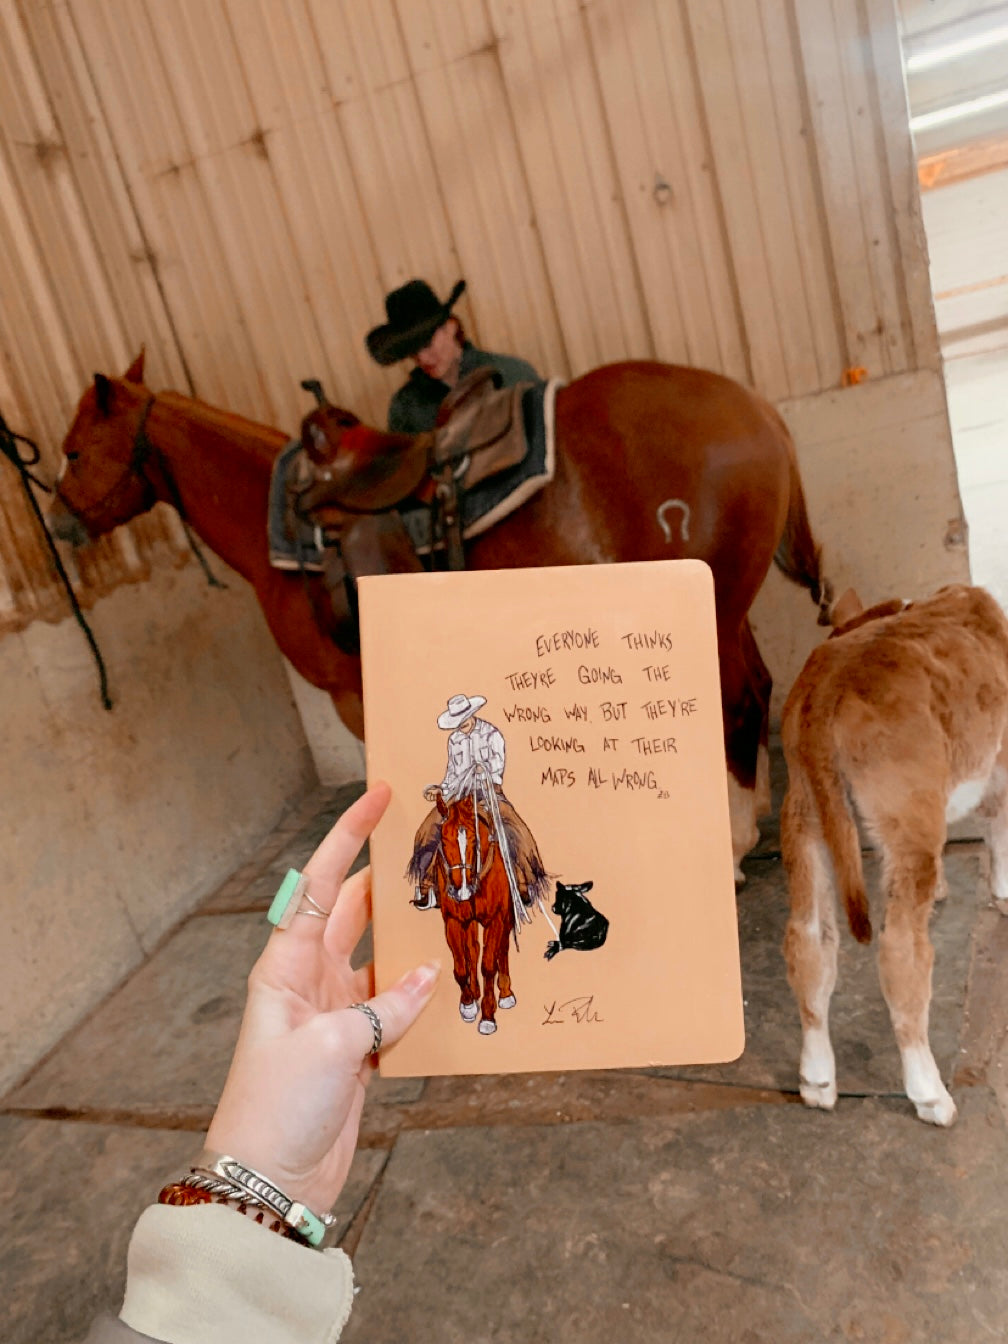 EVERYONE THINKS
THEY'RE GOING THE
WRONG WAY. BUT THEY'RE
LOOKING AT THEIR
MAPS ALL WRONG.